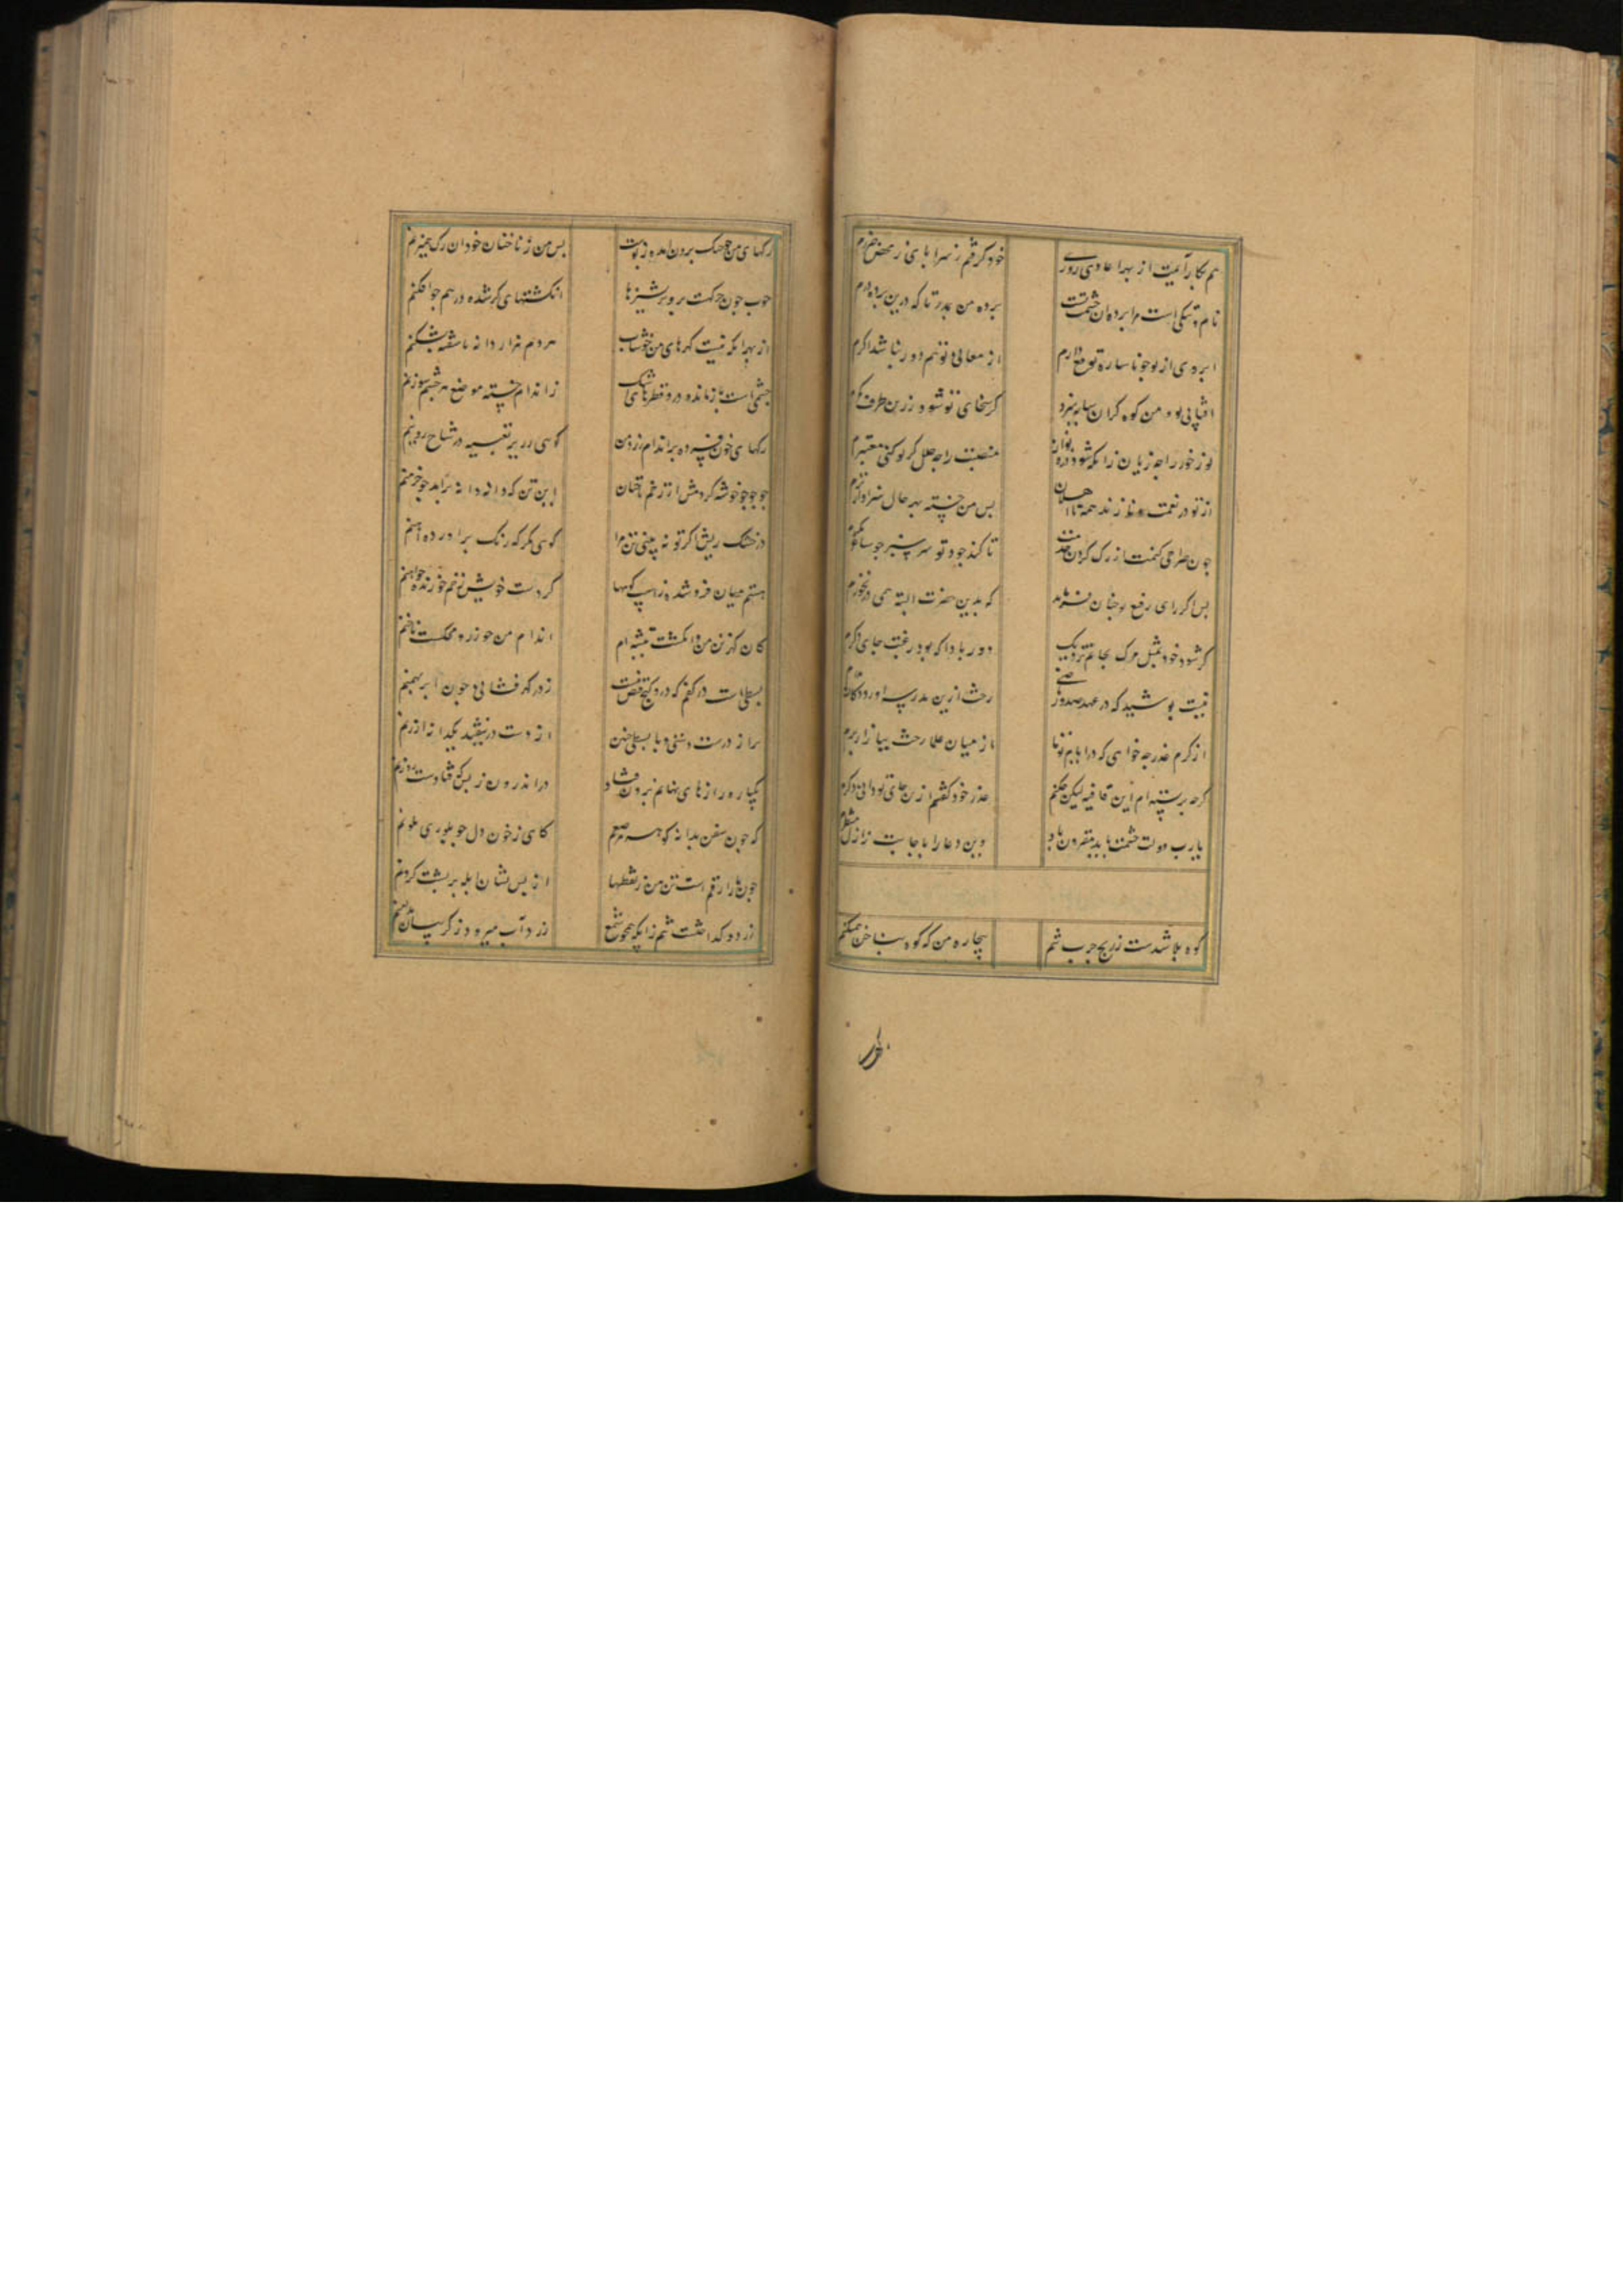 هم بکار آیمت از بهر اعادی روزی خود گرفتم زهر از بابی ز محض ضررم
نام و نیکی است مرا پرده آن حشمت تست پرده من مدر تا که درین پرده درم
ابروی از تو چو ناساره توقع دارم از معالی تو هم دور نباشد اگرم
افتابی تو و من کوه گران سایه بنزد گر سخای تو شود زرین طرف کمرم
نور خور را چه زیان زانکه شود ذره منصبت را چه خلل گر تو کنی معتبرم
از تو در نعمت و نازند همه تا پس من خسته بهر حال سزاوارترم
چون صراحی کنمت از رگ گردن خدمت تا کند جود تو سر سبز چو ساغر
پس اگر رای رفیع تو چنان فرماید که بدین حضرت البته همی درنخورم
گر شود خود بمثل مرگ بجانم نزدیک دور بادا که بود رغبت جای دگرم
نیست پوشیده که در عهد صدور ماضی رخت ازین مدرسه آورد
از کرم عذر چه خواهی که در ایام تو تا از میان علما رخت ببازار برم
گرچه بربسته ام این قافیه لیکن چکنم عذر خود گفتم ازین جای تو دانی و کرم
یارب دولت حشمت بابد مقرون باد وین دعا را باجابت ز ازل منتظرم
کوه بلا شدست ز رنج جرب تنم بیچاره من که کوه بناخن همیکنم
رگهای من چو چنگ برون آمده ز پوست پس من ز ناخنان خود آن رگ همیزنم
خوب چون حرکت بر بریشیزها انگشتهای گر شده در هم چو افکنم
از بهر آنکه نیست گهرهای من خوشاب هر دم هزار دانه ناسفته بشکنم
چشمی است بازمانده درو قطرهای اشک ز اندام خسته موضع هر چشم سوزنم
رگهای خون فسرده بر اندام زرد من گویی زریر تعبیه در شاخ روینم
جو جو چو خوشه کردمش از زخم ناخنان این تن که دانه دانه برآمد چو خرمنم
در خشک ریش اگر تو نه بینی تن مرا گویی مگر که زنگ برآورده آهنم
هستم میان فروشده ز آسیب گویها گر دست خویش زخم خورنده
کان کن من و انگشت تیشه ام اندام من چو زر و محکست ناخنم
بسطی است در کفم که درو هیچ قبض نیست زر گهرفشانی چون ابر بهمنم
براز درست دستی و با بسطی چنین از دست درنیفتد یکدانه ارزنم
یکباره رازهای نهانم برون فتاد در اندرون ز بسکه فتادست روزنم
گه چون سفن بدانه گوهر مرصعم گاهی ز خون دل چو بلوری ملونم
چون مار ارقم است تن من ز نقطها از بس نشان آبله بر پشت گردنم
زرد و گداخته است تنم زانکه همچو شمع زرد آب میرود ز گریبان بدامنم